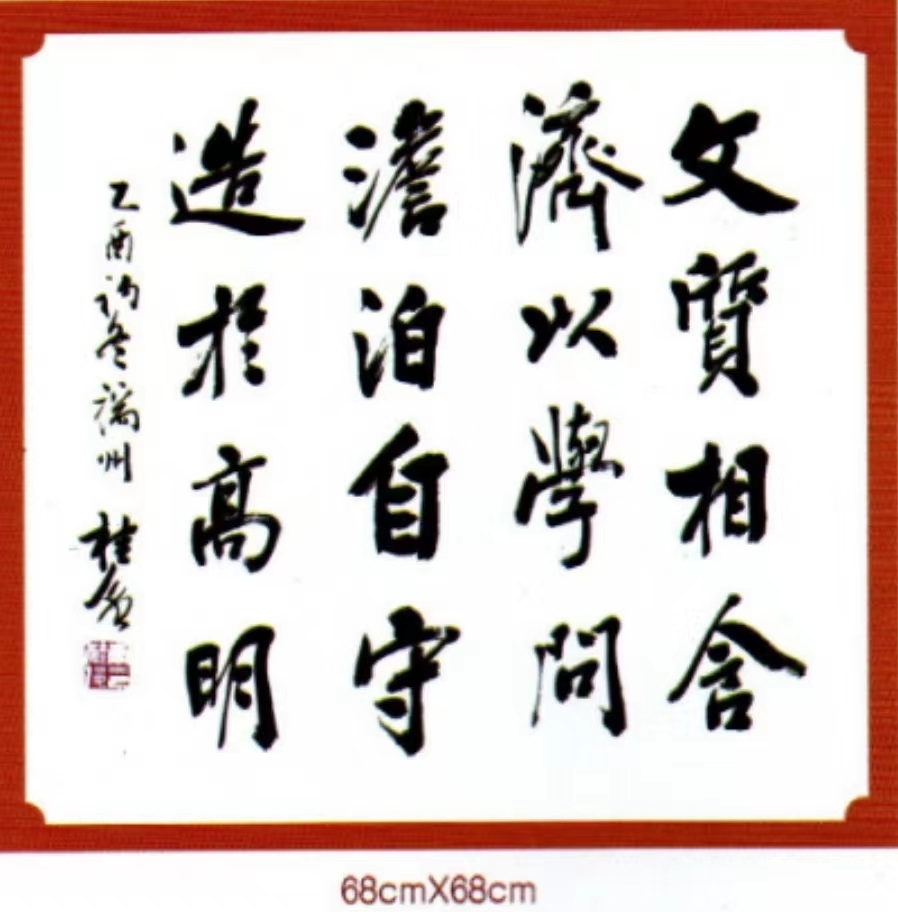 文質相含
濟以學問
澹泊自守
造於高明
乙酉初冬端州
桂
68cmX68cm